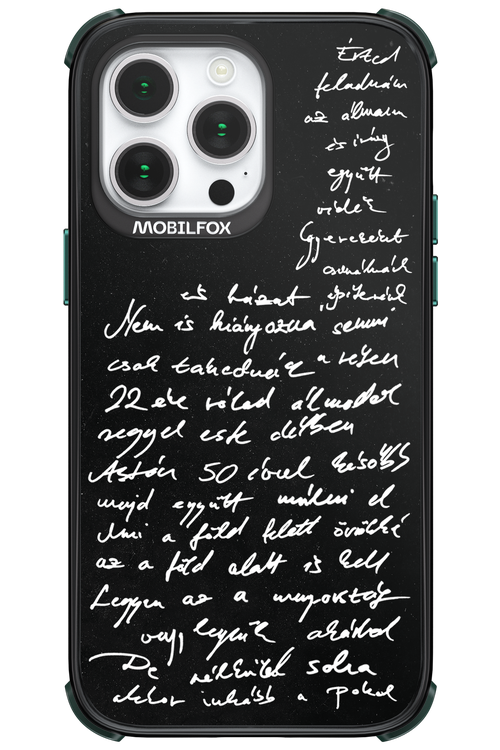 MOBILFOX
Érted
feladnám
az álmaim
és irány
együtt
vidék
Gyerekeket
csinálnánk
és házat építenénk
Nem is hiányozna semmi
csak takednék a réten
22 éve rólad álmodok
reggel este délben
Aztán 50 évvel később
majd együtt múlni el
Ami a föld felett örökké
az a föld alatt is kell
Legyen az a mennyország
vagy legyünk akárhol
De nélküled soha
akkor inkább a pokol